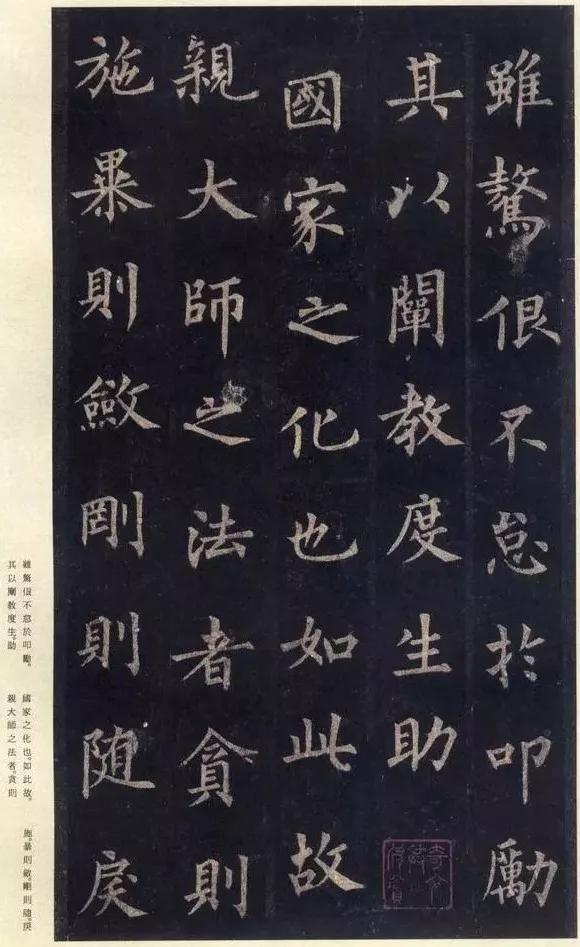 雖驁佷不怠於叩勵
其以闡教度生助
國家之化也如此故
親大師之法者貪則
施暴則斂剛則隨戾
雖驁佷不怠於叩勵。
其以闡教度生。助
國家之化也。如此故。
親大師之法者。貪則
施。暴則斂。剛則隨。戾